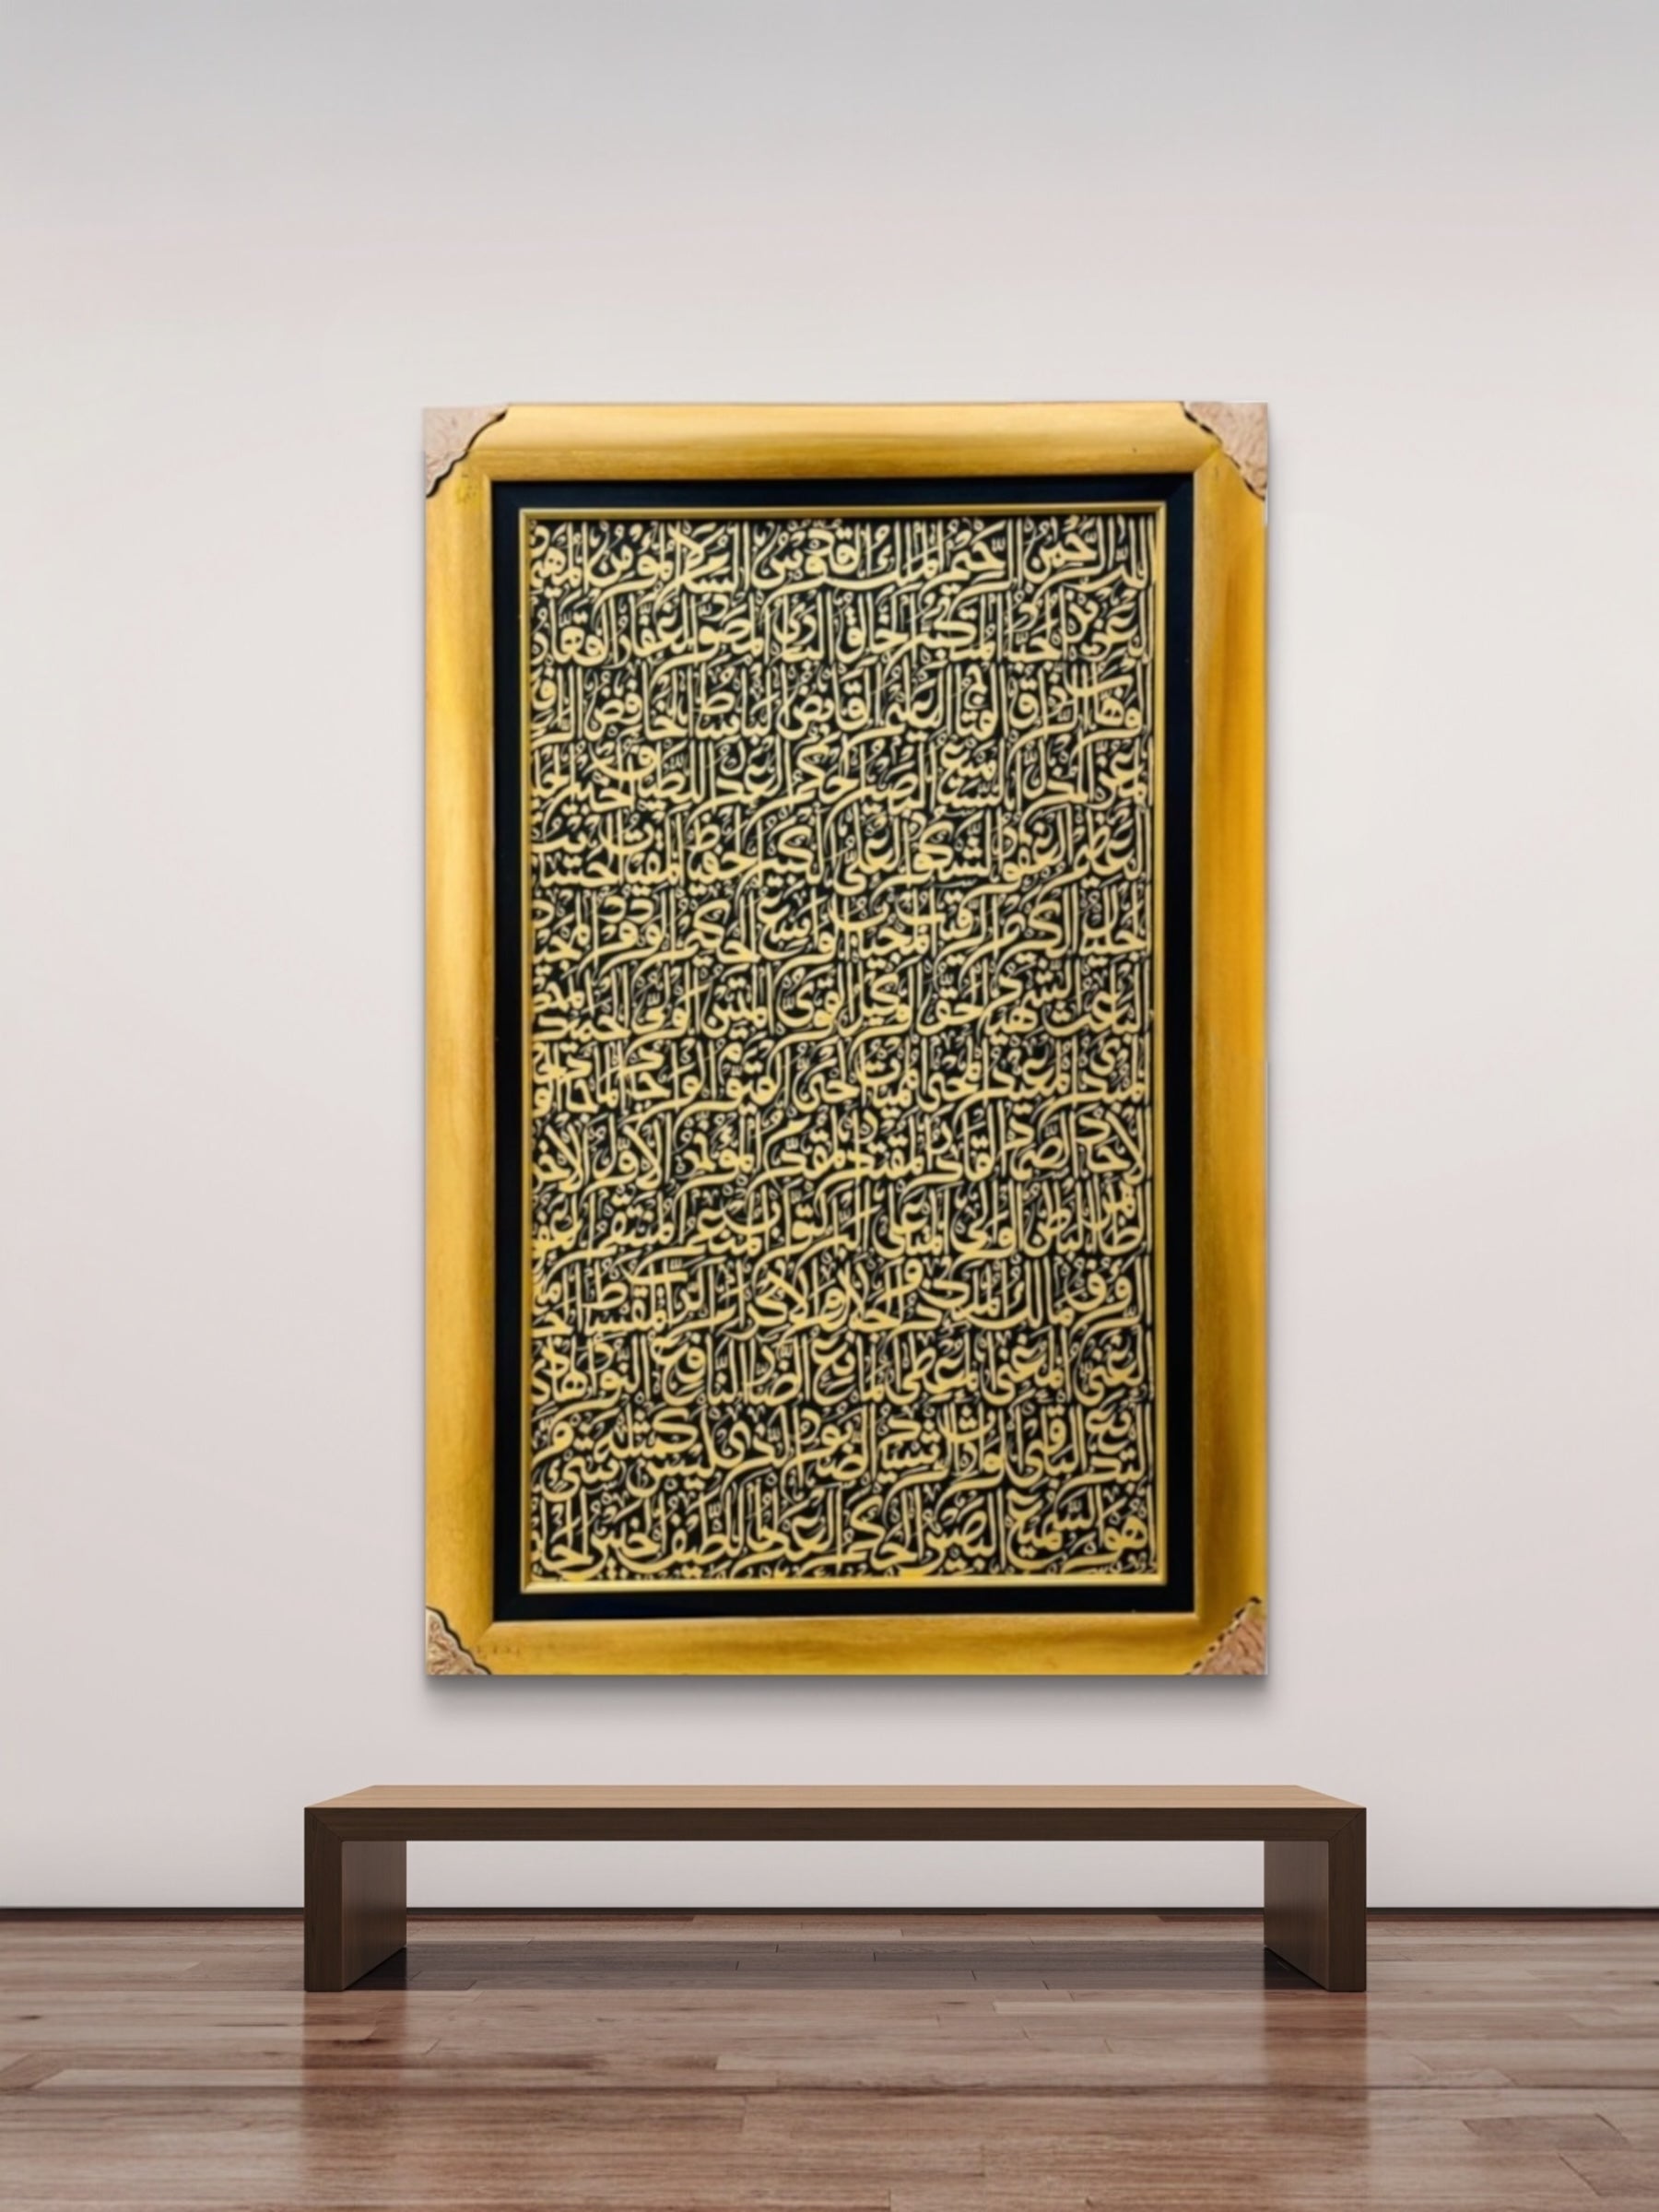 الله الرحمن الرحيم الملك القدوس السلام المؤمن المهيمن
العزيز الجبار المتكبر الخالق البارئ المصور الغفار القهار
الوهاب الرزاق الفتاح العليم القابض الباسط الخافض
المعز المذل السميع البصير الحكم العدل اللطيف الخبير
العظيم الغفور الشكور العلي الكبير الحفيظ المقيت الحسيب
الجليل الكريم الرقيب المجيب الواسع الحكيم الودود المجيد
الباعث الشهيد الحق الوكيل القوي المتين الولي الحميد
المبدئ المعيد المحيي المميت الحي القيوم الواجد الماجد
الأحد الصمد القادر المقتدر المقدم المؤخر الأول الآخر
الظاهر الباطن الوالي المتعالي البر التواب المنعم المنتقم العفو
الرؤوف مالك الملك ذو الجلال والإكرام الرب المقسط
الغني المغني المعطي المانع الضار النافع النور الهادي
البديع الباقي الوارث الرشيد الصبور الذي ليس كمثله شيء
وهو السميع البصير الحكم العدل اللطيف الخبير